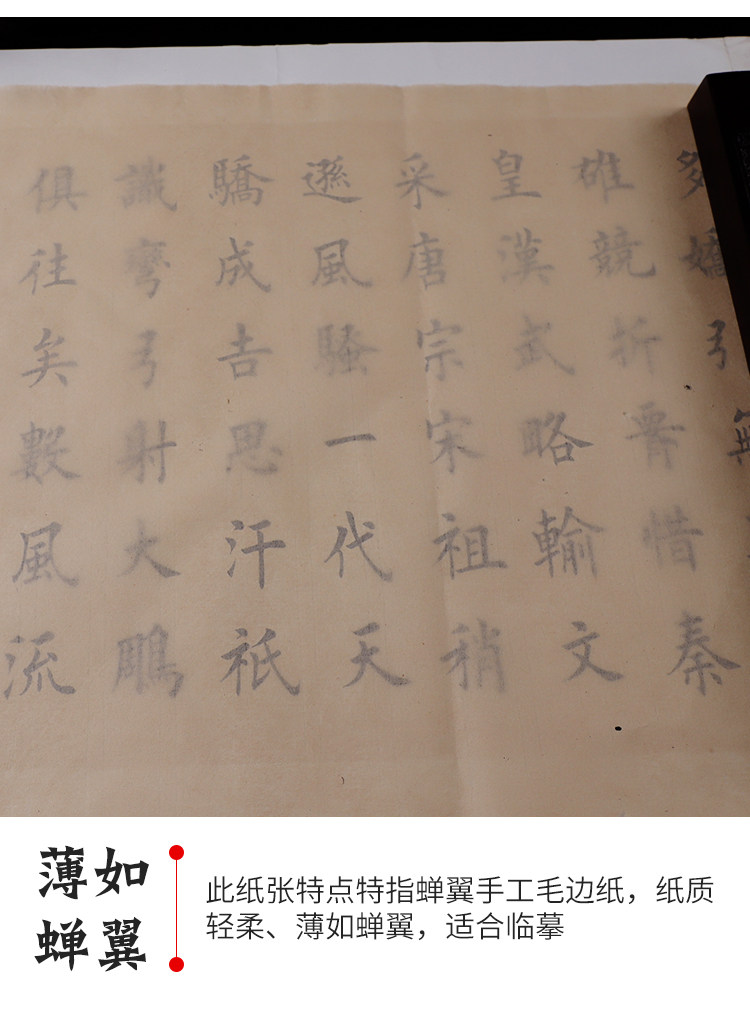 多嬌引無
雄競折惜秦
皇漢武略輸文
采唐宗宋祖稍
遜風騷一代天
驕成吉思汗祇
識彎弓射大鵰
俱往矣數風流
薄如
蝉翼
此纸张特点特指蝉翼手工毛边纸，纸质
轻柔、薄如蝉翼，适合临摹